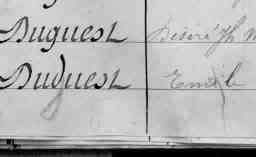 Duquest Désiré Jh
Duquest Emile